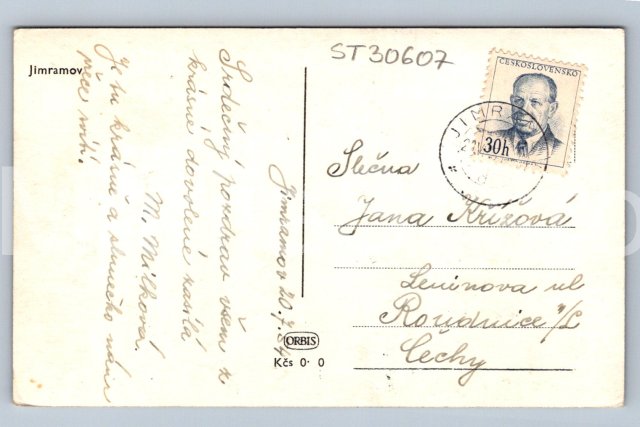 ST30607
Jimramov
Srdečný pozdrav všem z
krásné dovolené zasílá
M. Milková.
Je tu krásně a sluníčko nám
přece svítí.
Jimramov 20.7.64
ČESKOSLOVENSKO
30h
Slečna
Jana Křížová
Leninova ul
Roudnice n/L
Čechy
ORBIS
Kčs 0·0